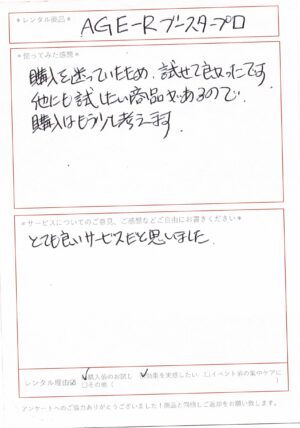 ＊レンタル商品＊ AGE-Rブースタープロ
＊使ってみた感想＊
購入を迷っていたため、試せて良かったです
他にも試したい商品があるので、
購入はもう少し考えます
＊サービスについてのご意見、ご感想などご自由にお書きください＊
とても良いサービスだと思いました
レンタル理由は ✓購入前のお試し ✓効果を実感したい □イベント前の集中ケアに
□その他（ ）
アンケートへのご協力ありがとうございました！商品と同梱しご返却をお願い致します。